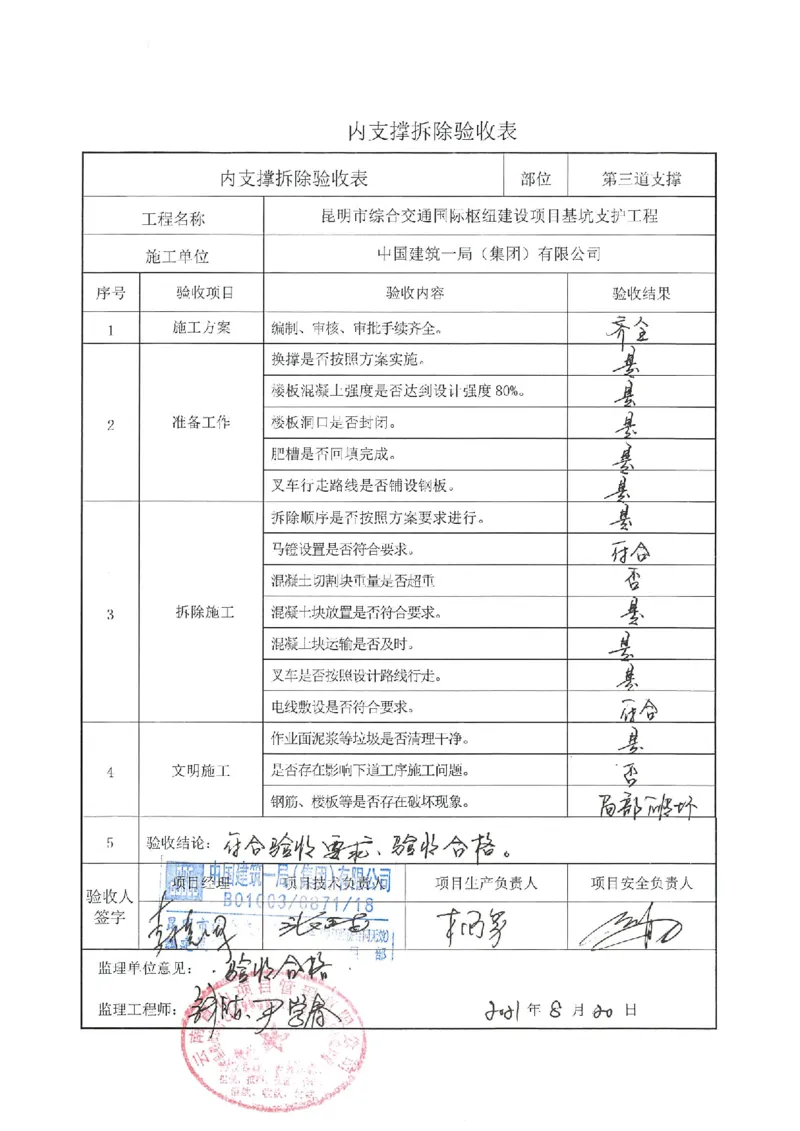 内支撑拆除验收表
内支撑拆除验收表 部位 第三道支撑
工程名称 昆明市综合交通国际枢纽建设项目基坑支护工程
施工单位 中国建筑一局（集团）有限公司
序号 验收项目 验收内容 验收结果
1 施工方案 编制、审核、审批手续齐全。 齐全
2 准备工作 换撑是否按照方案实施。 是
楼板混凝土强度是否达到设计强度80%。 是
楼板洞口是否封闭。 是
肥槽是否回填完成。 是
叉车行走路线是否铺设钢板。 是
3 拆除施工 拆除顺序是否按照方案要求进行。 是
马镫设置是否符合要求。 符合
混凝土切割块重量是否超重 否
混凝土块放置是否符合要求。 是
混凝土块运输是否及时。 是
叉车是否按照设计路线行走。 是
电线敷设是否符合要求。 符合
4 文明施工 作业面泥浆等垃圾是否清理干净。 是
是否存在影响下道工序施工问题。 否
钢筋、楼板等是否存在破坏现象。 局部破坏
5 验收结论：符合验收要求、验收合格。
验收人签字 项目经理 项目技术负责人 项目生产负责人 项目安全负责人
中国建筑一局（集团）有限公司
B01003/0871/18
监理单位意见：验收合格
监理工程师： 尹学春
2021年8月20日